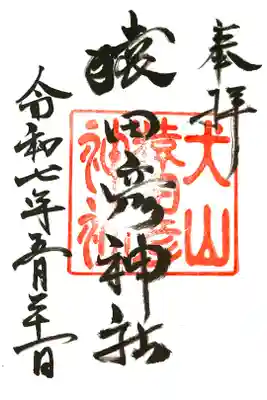 奉拝
犬山
猿田彦
神社
猿田彦神社
令和七年五月二十一日